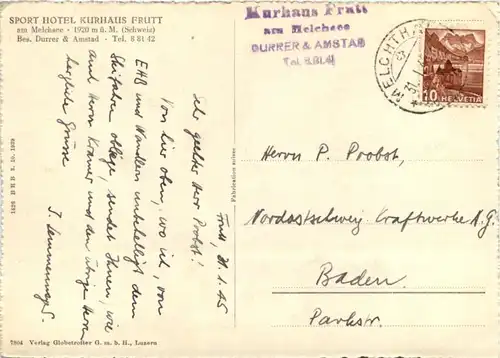 SPORT HOTEL KURHAUS FRUTT
am Melchsee · 1920 m ü. M. (Schweiz)
Bes. Durrer & Amstad · Tel. 8 81 42
Kurhaus Frutt
am Melchsee
DURRER & AMSTAD
Tel. 8.81.41
MELCHTHAL
31. I.
10 HELVETIA
Frutt, 31.1.45
Sehr geehrter Herr Probst!
Von hier oben, wo ich, von
EHB und Wandern unbehelligt dem
Skifahren obliege, sendet Ihnen, wie
auch Herrn Kramer und den übrigen Herren
herzliche Grüsse
J.
Herrn P. Probst,
Nordostschweiz. Kraftwerke A.G.
Baden.
Parkstr.
Fabrication suisse
7804 Verlag Globetrotter G. m. b. H., Luzern